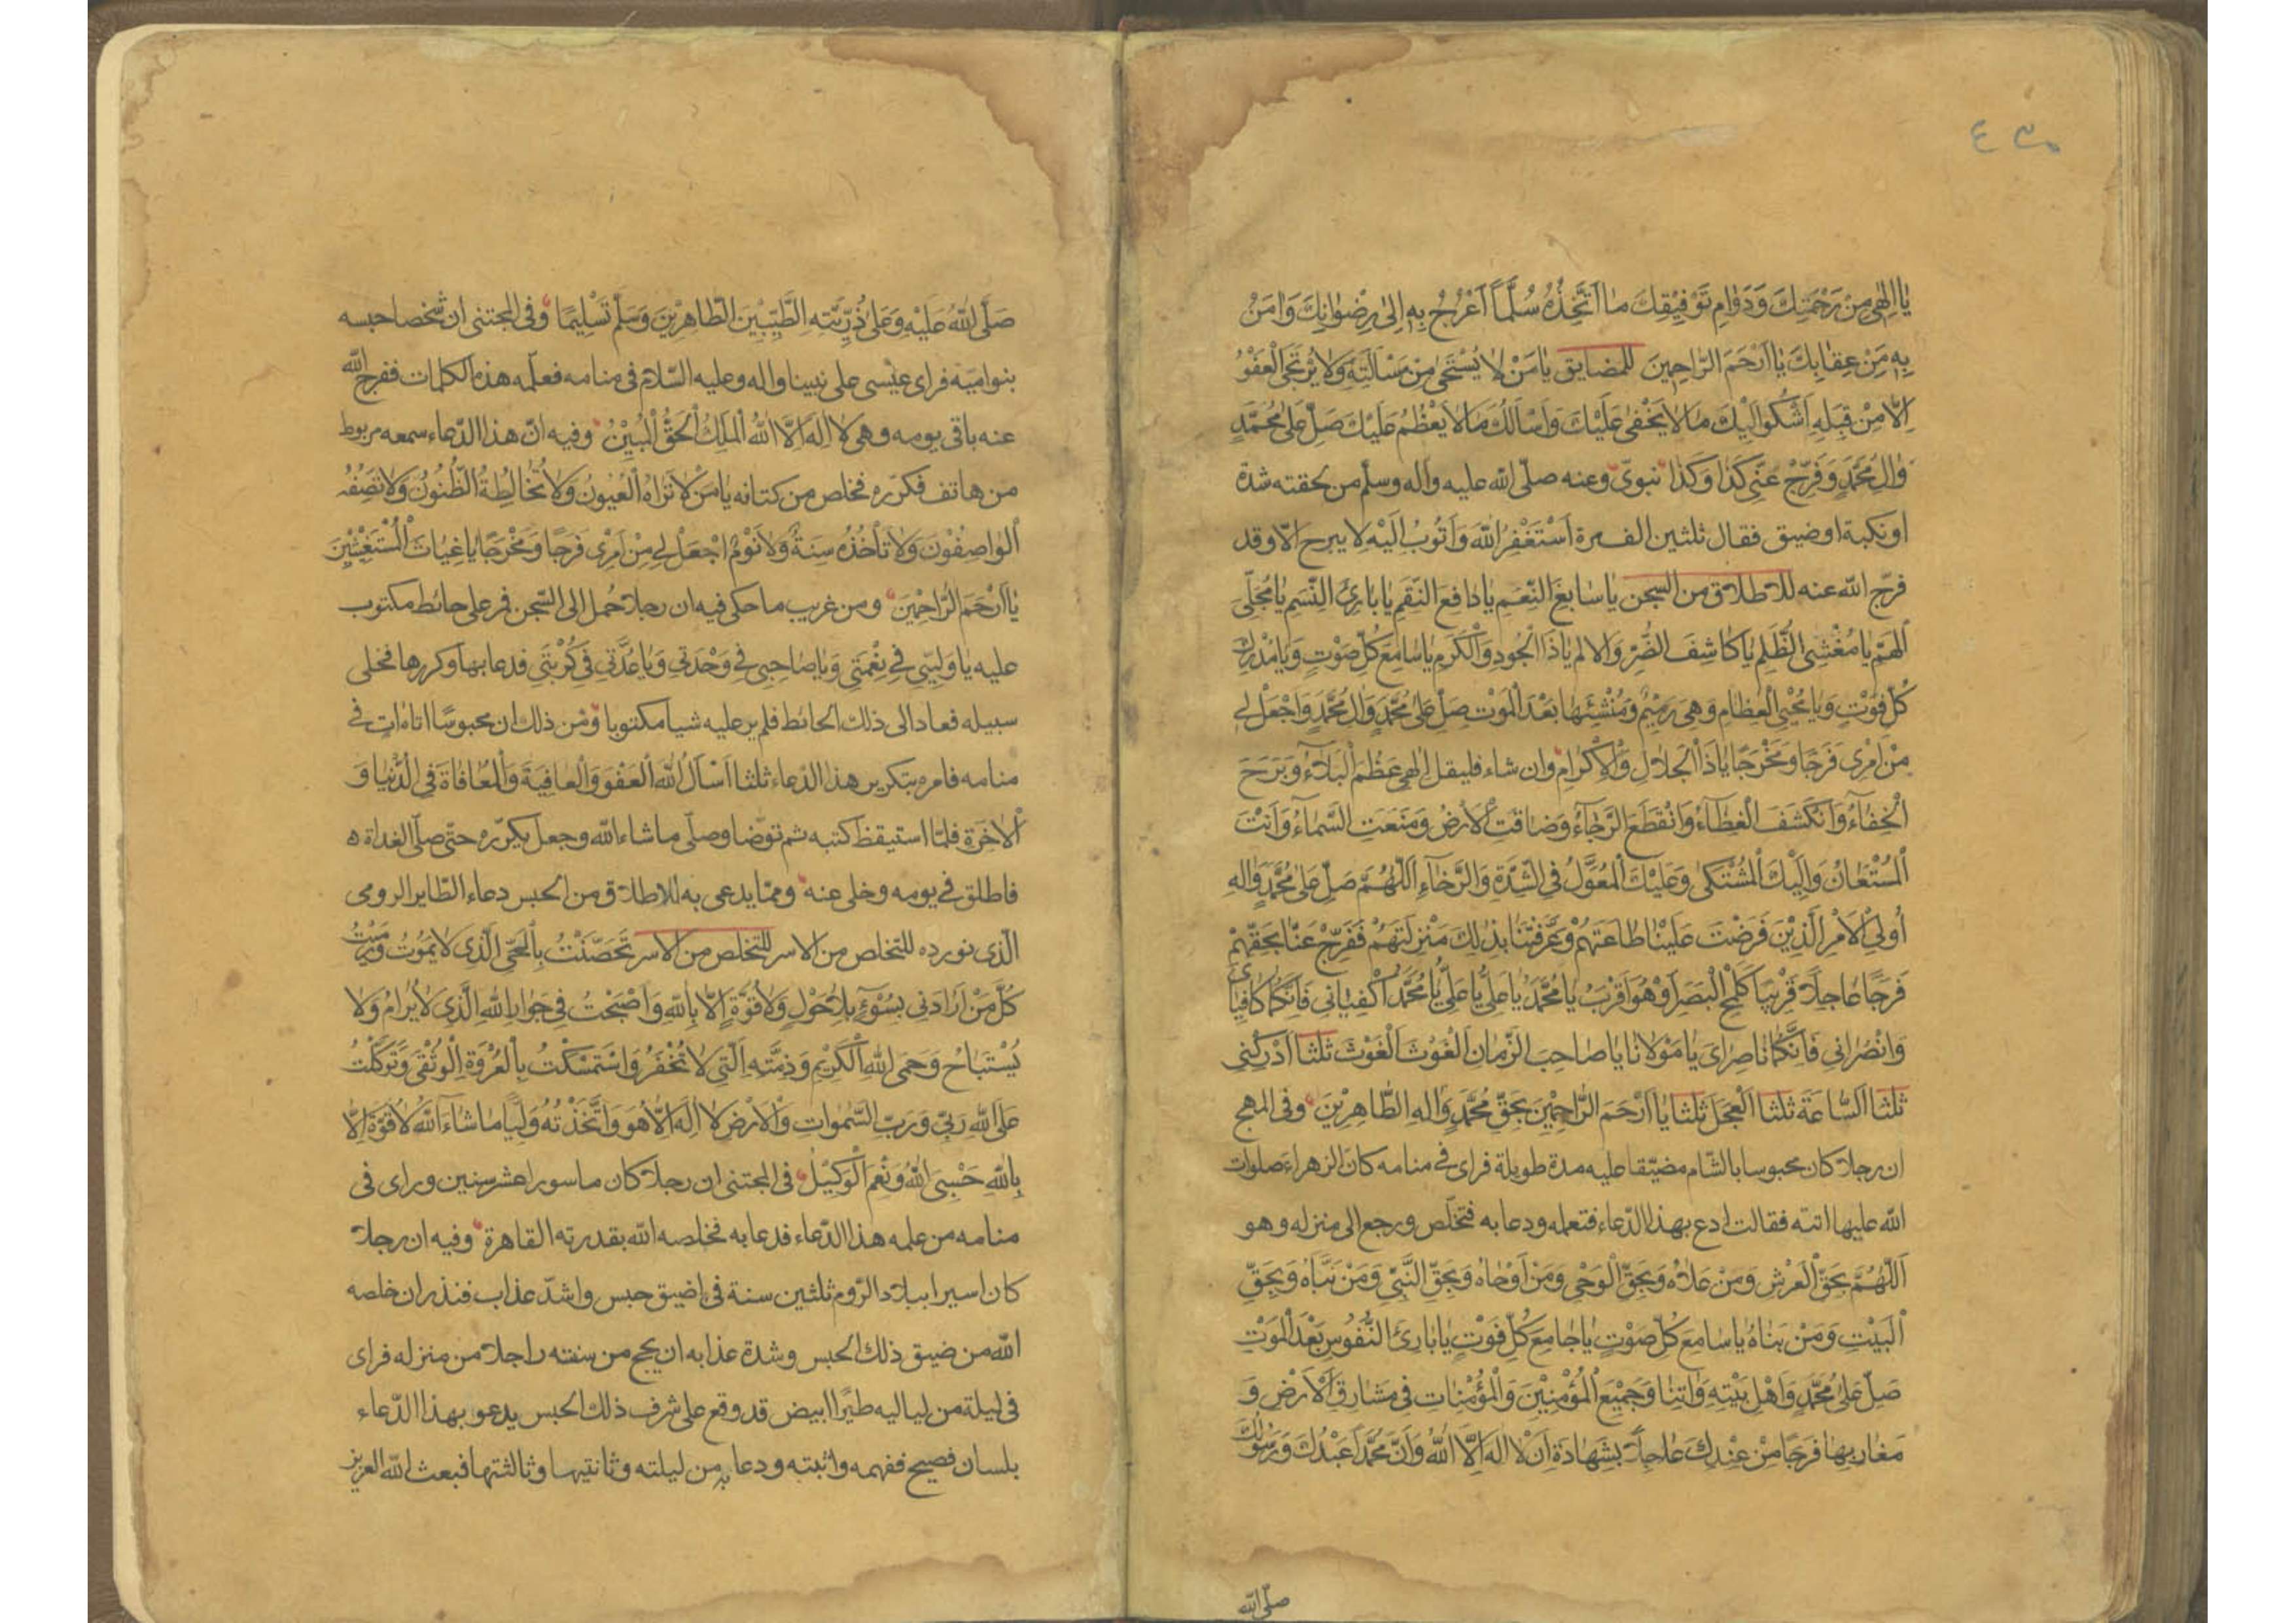 يَا اِلٰهِى مِنْ رَحْمَتِكَ وَدَوَامِ تَوْفِيْقِكَ مَا اَتَّخِذُهُ سُلَّمًا اَعْرُجُ بِهِ اِلٰى رِضْوَانِكَ وَاٰمَنُ
بِهِ مِنْ عِقَابِكَ يَا اَرْحَمَ الرَّاحِمِينَ للمضايق يَا مَنْ لَا يُسْتَحْىٰ مِنْ مَسْاَلَتِهِ وَلَا يُرْتَجَى الْعَفْوُ
اِلَّا مِنْ قِبَلِهِ اَشْكُو اِلَيْكَ مَا لَا يَخْفٰى عَلَيْكَ وَاَسْاَلُكَ مَا لَا يَعْظُمُ عَلَيْكَ صَلِّ عَلٰى مُحَمَّدٍ
وَاٰلِ مُحَمَّدٍ وَفَرِّجْ عَنِّى كَذَا وَكَذَا نبوىّ وعنه صلّى الله عليه واله وسلّم من لحقته شدة
او نكبة او ضيق فقال ثلثين الف مرة اَسْتَغْفِرُ اللهَ وَاَتُوبُ اِلَيْهِ لا يبرح الّا وقد
فرّج الله عنه للاطلاق من السجن يَا سَابِغَ النِّعَمِ يَا دَافِعَ النِّقَمِ يَا بَارِئَ النَّسَمِ يَا مُجَلِّىَ
الْهَمِّ يَا مُغْشِىَ الظُّلَمِ يَا كَاشِفَ الضُّرِّ وَالْاَلَمِ يَا ذَا الْجُودِ وَالْكَرَمِ يَا سَامِعَ كُلِّ صَوْتٍ وَيَا مُدْرِكَ
كُلِّ فَوْتٍ وَيَا مُحْيِىَ الْعِظَامِ وَهِىَ رَمِيْمٌ وَمُنْشِئَهَا بَعْدَ الْمَوْتِ صَلِّ عَلٰى مُحَمَّدٍ وَاٰلِ مُحَمَّدٍ وَاجْعَلْ لِى
مِنْ اَمْرِى فَرَجًا وَمَخْرَجًا يَا ذَا الْجَلَالِ وَالْاِكْرَامِ وان شاء فليقل اِلٰهِى عَظُمَ الْبَلَاءُ وَبَرِحَ
الْخَفَاءُ وَانْكَشَفَ الْغِطَاءُ وَانْقَطَعَ الرَّجَاءُ وَضَاقَتِ الْاَرْضُ وَمَنَعَتِ السَّمَاءُ وَاَنْتَ
الْمُسْتَعَانُ وَاِلَيْكَ الْمُشْتَكٰى وَعَلَيْكَ الْمُعَوَّلُ فِى الشِّدَّةِ وَالرَّخَاءِ اَللّٰهُمَّ صَلِّ عَلٰى مُحَمَّدٍ وَاٰلِهِ
اُولِى الْاَمْرِ الَّذِيْنَ فَرَضْتَ عَلَيْنَا طَاعَتَهُمْ وَعَرَّفْتَنَا بِذٰلِكَ مَنْزِلَتَهُمْ فَفَرِّجْ عَنَّا بِحَقِّهِمْ
فَرَجًا عَاجِلًا قَرِيْبًا كَلَمْحِ الْبَصَرِ اَوْ هُوَ اَقْرَبُ يَا مُحَمَّدُ يَا عَلِىُّ يَا عَلِىُّ يَا مُحَمَّدُ اكْفِيَانِى فَاِنَّكُمَا كَافِيَاىَ
وَانْصُرَانِى فَاِنَّكُمَا نَاصِرَاىَ يَا مَوْلَانَا يَا صَاحِبَ الزَّمَانِ الْغَوْثَ الْغَوْثَ ثلثا اَدْرِكْنِى
ثلثا السَّاعَةَ ثلثا الْعَجَلَ ثلثا يَا اَرْحَمَ الرَّاحِمِيْنَ بِحَقِّ مُحَمَّدٍ وَاٰلِهِ الطَّاهِرِيْنَ وفى المهج
ان رجلا كان محبوسا بالشام مضيّقا عليه مدة طويلة فراى فى منامه كان الزهراء صلوات
الله عليها اتته فقالت ادع بهذا الدّعاء فتعلمه ودعا به فتخلّص ورجع الى منزله وهو
اَللّٰهُمَّ بِحَقِّ الْعَرْشِ وَمَنْ عَلَاهُ وَبِحَقِّ الْوَحْىِ وَمَنْ اَوْحَاهُ وَبِحَقِّ النَّبِىِّ وَمَنْ نَبَّاَهُ وَبِحَقِّ
الْبَيْتِ وَمَنْ بَنَاهُ يَا سَامِعَ كُلِّ صَوْتٍ يَا جَامِعَ كُلِّ فَوْتٍ يَا بَارِئَ النُّفُوسِ بَعْدَ الْمَوْتِ
صَلِّ عَلٰى مُحَمَّدٍ وَاَهْلِ بَيْتِهِ وَاٰتِنَا وَجَمِيْعَ الْمُؤْمِنِيْنَ وَالْمُؤْمِنَاتِ فِى مَشَارِقِ الْاَرْضِ وَ
مَغَارِبِهَا فَرَجًا مِنْ عِنْدِكَ عَاجِلًا بِشَهَادَةِ اَنْ لَا اِلٰهَ اِلَّا اللهُ وَاَنَّ مُحَمَّدًا عَبْدُكَ وَرَسُولُكَ
صلّى الله
صَلَّى اللهُ عَلَيْهِ وَعَلٰى ذُرِّيَّتِهِ الطَّيِّبِيْنَ الطَّاهِرِيْنَ وَسَلَّمَ تَسْلِيْمًا وفى المجتنى ان شخصا حبسه
بنو اميّة فراى عيسى على نبينا واله وعليه السّلام فى منامه فعلّمه هذه الكلمات ففرج الله
عنه باقى يومه وهى لَا اِلٰهَ اِلَّا اللهُ الْمَلِكُ الْحَقُّ الْمُبِيْنُ وفيه انّ هذا الدّعاء سمعه مربوط
من هاتف فكرّره فخلص من كتافه يَا مَنْ لَا تَرَاهُ الْعُيُونُ وَلَا تُخَالِطُهُ الظُّنُونُ وَلَا تَصِفُهُ
الْوَاصِفُونَ وَلَا تَأْخُذُهُ سِنَةٌ وَلَا نَوْمٌ اجْعَلْ لِى مِنْ اَمْرِى فَرَجًا وَمَخْرَجًا يَا غِيَاثَ الْمُسْتَغِيْثِيْنَ
يَا اَرْحَمَ الرَّاحِمِيْنَ ومن غريب ما حكى فيه ان رجلا حمل الى السّجن فمر على حائط مكتوب
عليه يَا وَلِيِّى فِى نِعْمَتِى وَيَا صَاحِبِى فِى وَحْدَتِى وَيَا عُدَّتِى فِى كُرْبَتِى فدعا بها وكررها فخلى
سبيله فعاد الى ذلك الحائط فلم ير عليه شيا مكتوبا ومن ذلك ان محبوسًا اتاه اٰت فى
منامه فامره بتكرير هذا الدّعاء ثلثا اَسْاَلُ اللهَ الْعَفْوَ وَالْعَافِيَةَ وَالْمُعَافَاةَ فِى الدُّنْيَا وَ
الْاٰخِرَةِ فلمّا استيقظ كتبه ثم توضا وصلّى ما شاء الله وجعل يكرّره حتّى صلّى الغداة ه
فاطلق فى يومه وخلى عنه وممّا يدعى به للاطلاق من الحبس دعاء الطّاير الرومى
الّذى نورده للتخلص من الاسر للتخلص من الاسر تَحَصَّنْتُ بِالْحَىِّ الَّذِى لَا يَمُوتُ وَرَمَيْتُ
كُلَّ مَنْ اَرَادَنِى بِسُوْءٍ بِلَا حَوْلٍ وَلَا قُوَّةَ اِلَّا بِاللهِ وَاَصْبَحْتُ فِى جِوَارِ اللهِ الَّذِى لَا يُرَامُ وَلَا
يُسْتَبَاحُ وَحِمَى اللهِ الْكَرِيْمِ وَذِمَّتِهِ الَّتِى لَا تُخْفَرُ وَاسْتَمْسَكْتُ بِالْعُرْوَةِ الْوُثْقٰى وَتَوَكَّلْتُ
عَلَى اللهِ رَبِّى وَرَبِّ السَّمٰوَاتِ وَالْاَرْضِ لَا اِلٰهَ اِلَّا هُوَ وَاتَّخَذْتُهُ وَلِيًّا مَا شَاءَ اللهُ لَا قُوَّةَ اِلَّا
بِاللهِ حَسْبِىَ اللهُ وَنِعْمَ الْوَكِيْلُ فى المجتنى ان رجلا كان ماسورا عشر سنين وراى فى
منامه من علمه هذا الدّعاء فدعا به فخلصه الله بقدرته القاهرة وفيه ان رجلا
كان اسيرا ببلاد الرّوم ثلثين سنة فى اضيق حبس واشدّ عذاب فنذر ان خلصه
الله من ضيق ذلك الحبس وشدة عذابه ان يحج من سنته راجلا من منزله فراى
فى ليلة من لياليه طيرًا ابيض قد وقع على شرف ذلك الحبس يدعو بهذا الدّعاء
بلسان فصيح ففهمه واثبته ودعا به من ليلته وثانتيها وثالثتها فبعث الله العزيز